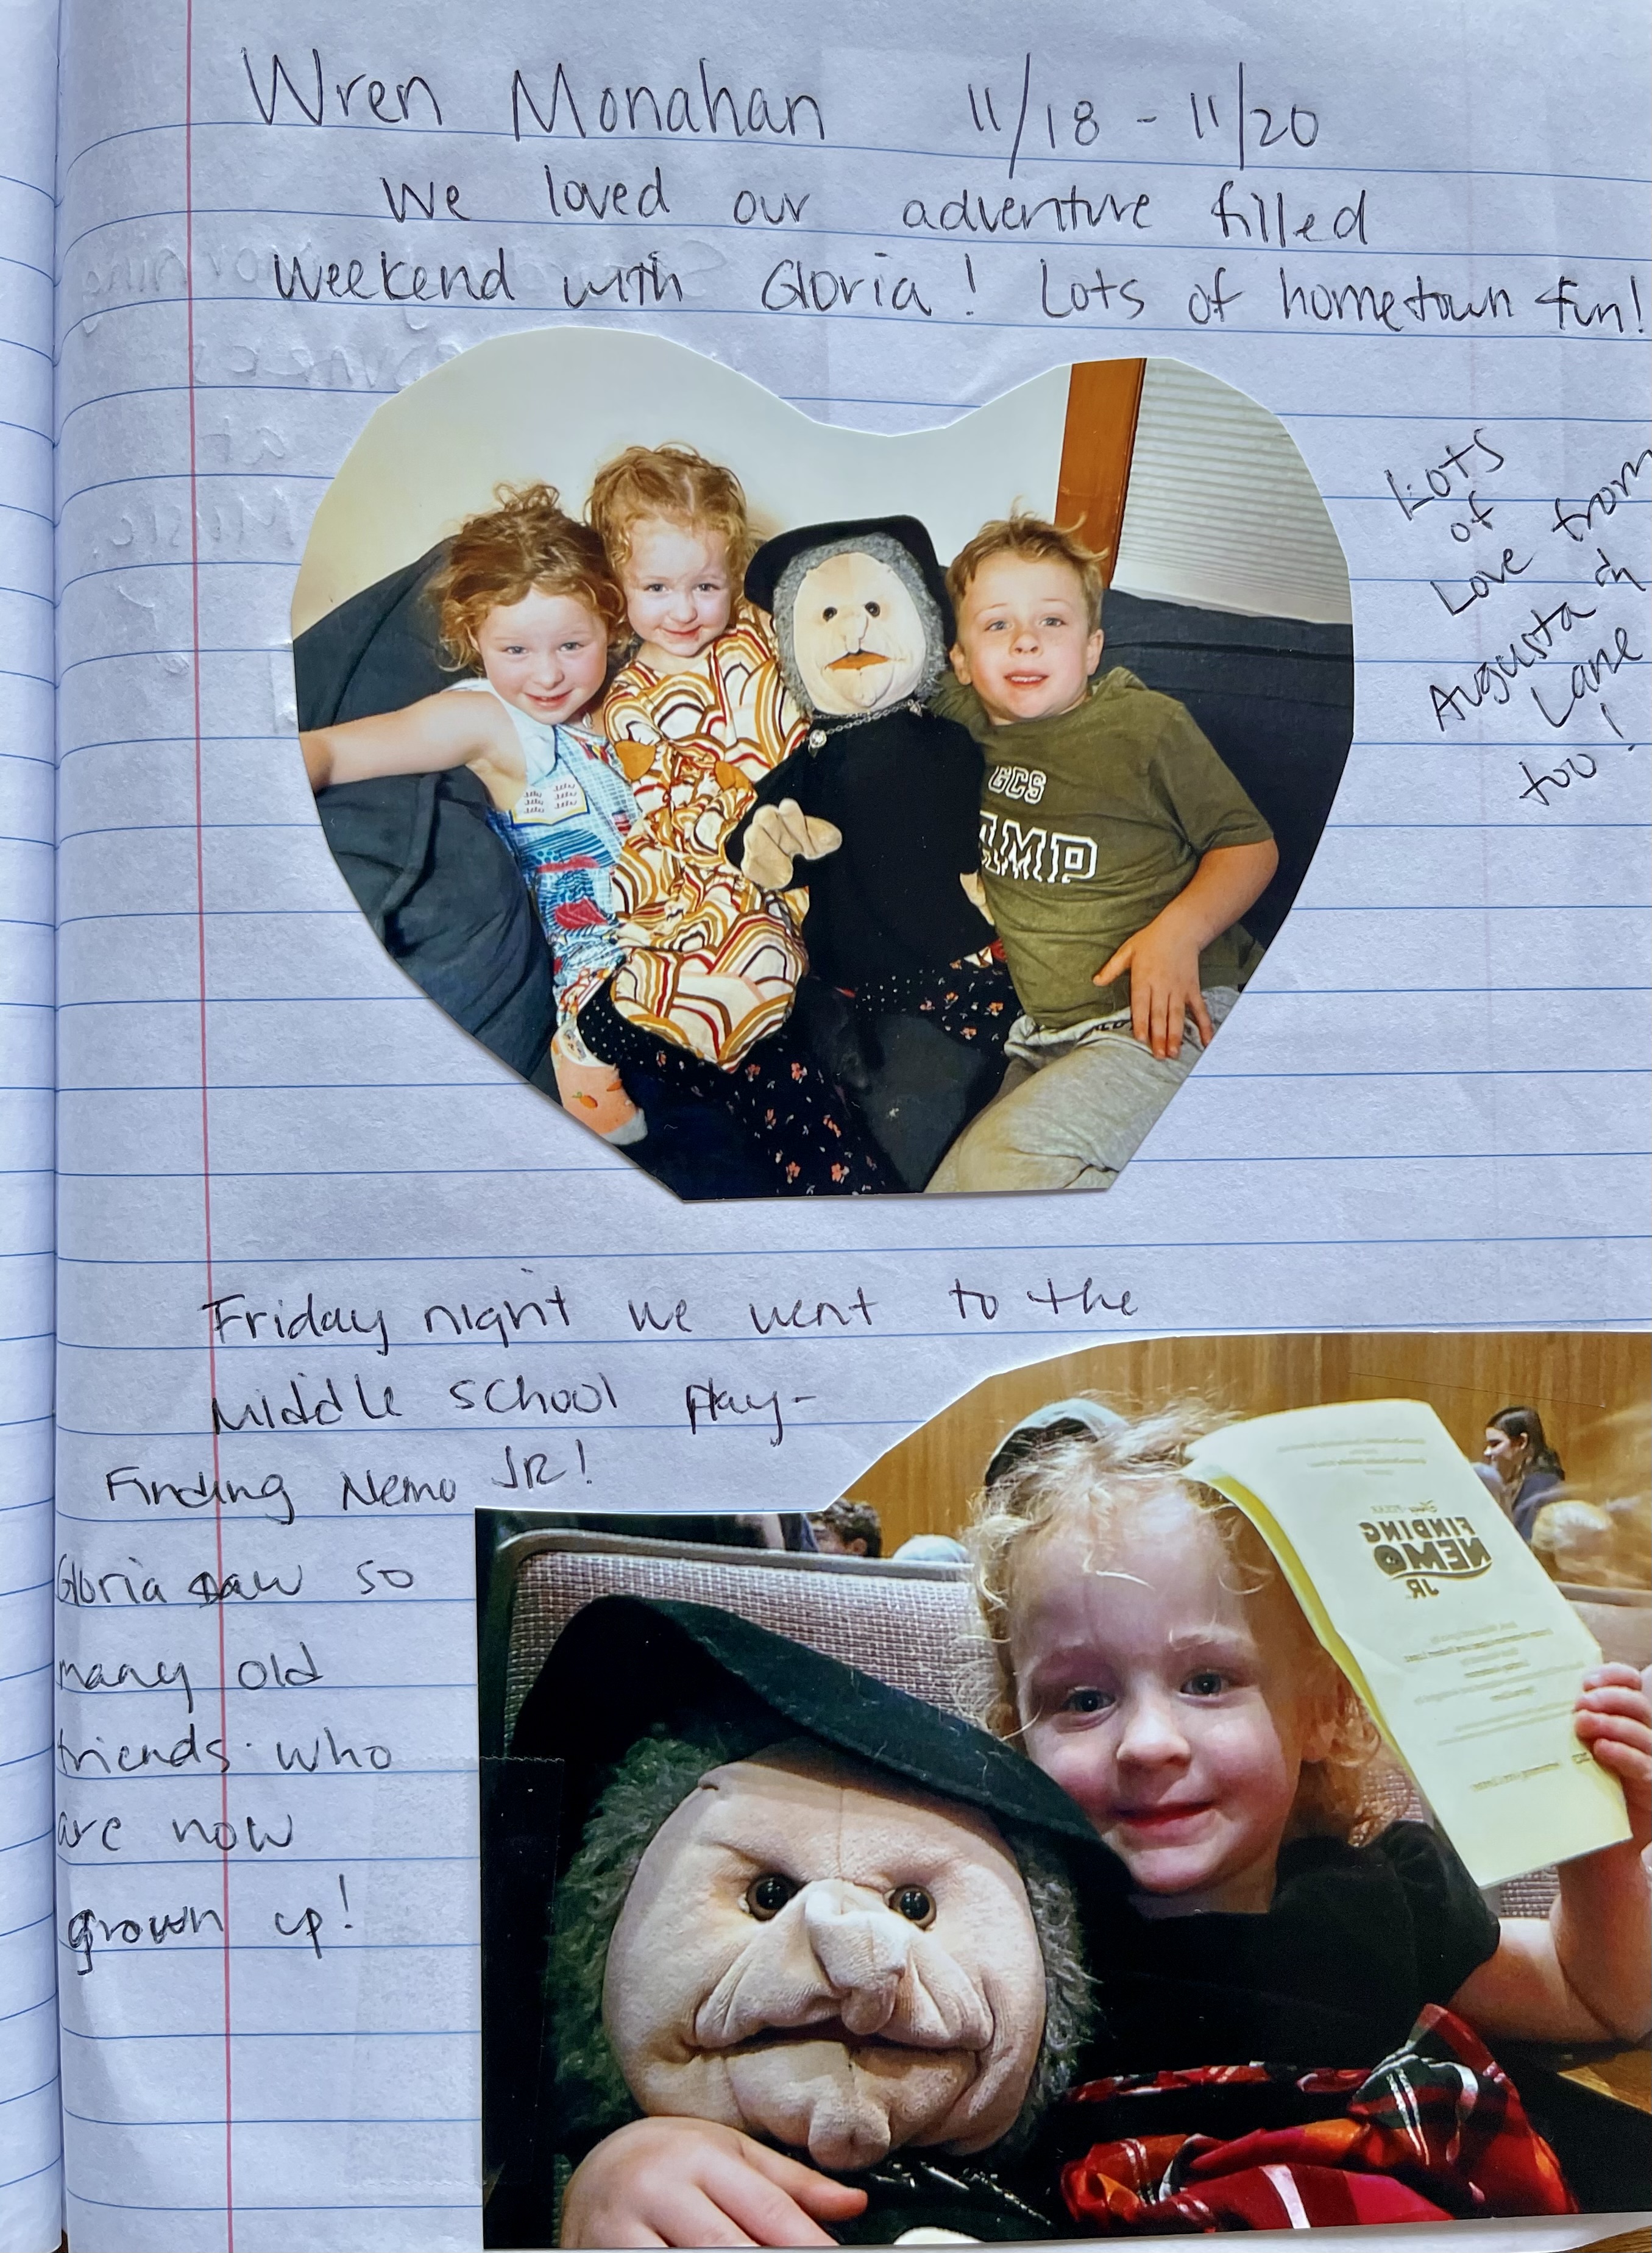 Wren Monahan 11/18 - 11/20
We loved our adventure filled
weekend with Gloria! Lots of hometown fun!
Lots
of
Love from
Augusta &
Lane
too!
GCS
AMP
Friday night we went to the
Middle school play-
Finding Nemo JR!
Gloria saw so
many old
friends who
are now
grown up!
FINDING
NEMO
JR